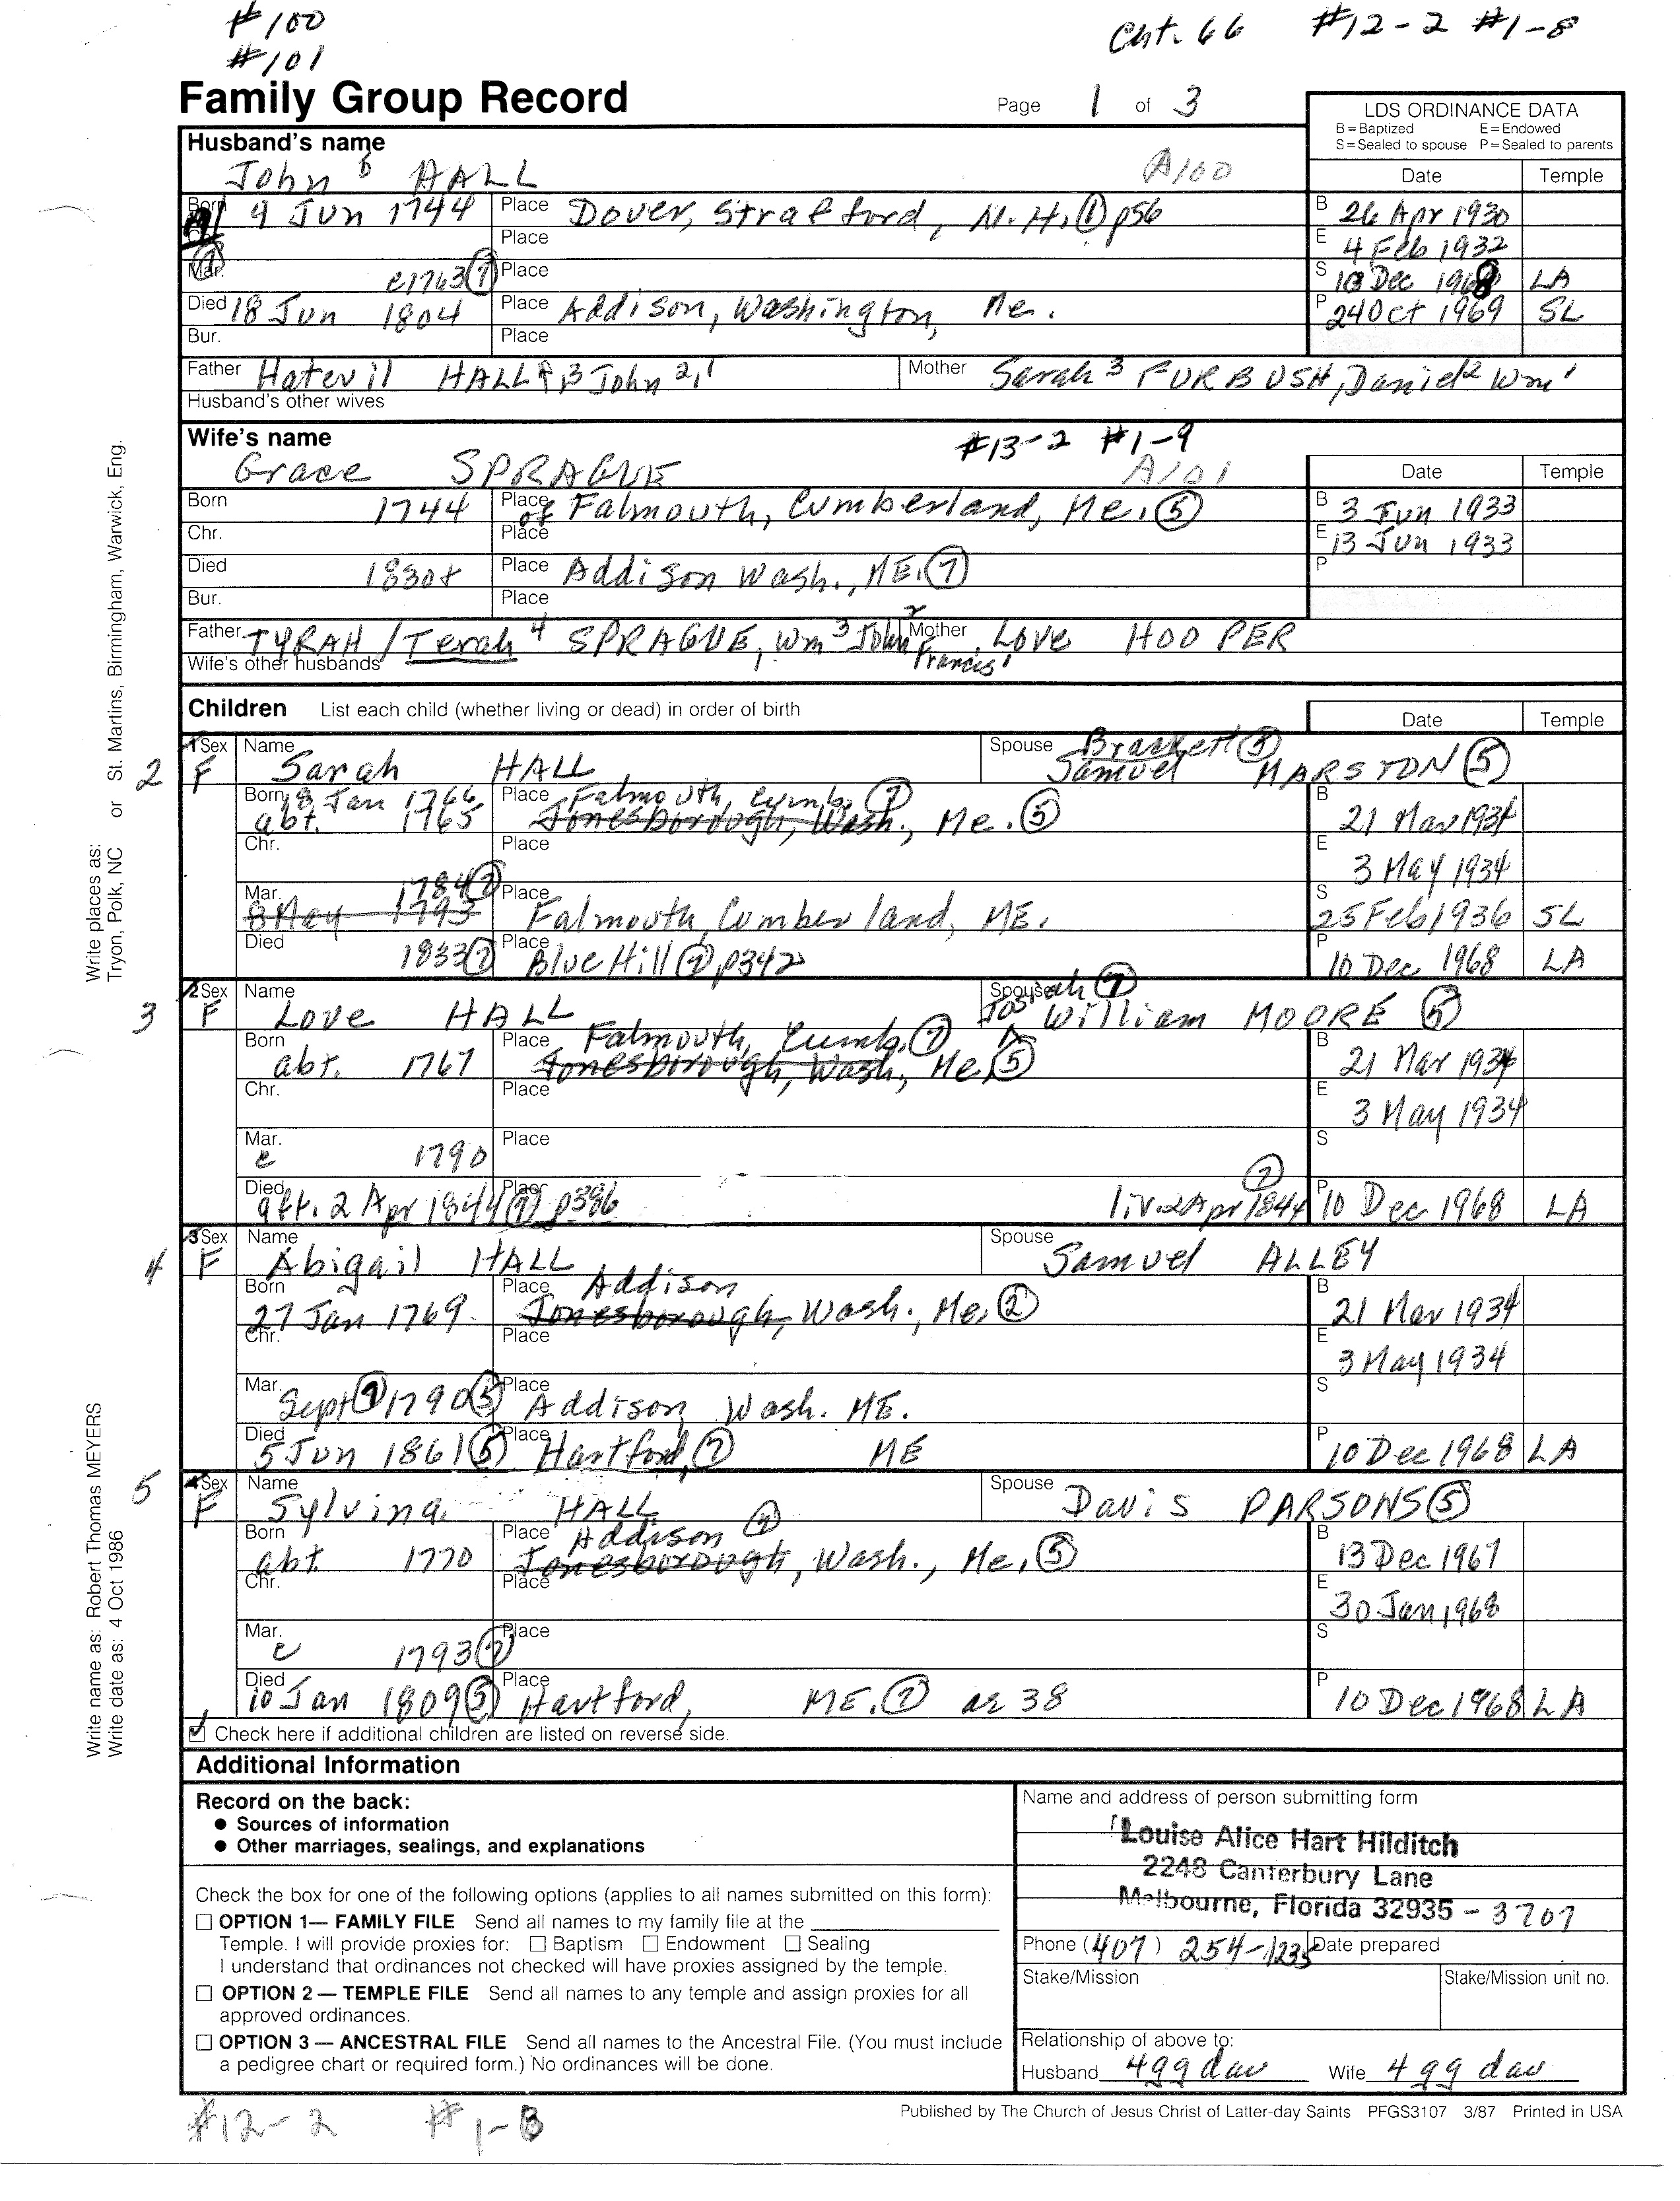 #100
#101
Cht. 66 #12-2 #1-8
Family Group Record
Page 1 of 3
LDS ORDINANCE DATA
B=Baptized E=Endowed
S=Sealed to spouse P=Sealed to parents
Husband's name
John HALL A100
Date Temple
Born 9 Jun 1744 Place Dover, Strafford, N.H. ① p56
B 26 Apr 1930
Place
E 4 Feb 1932
Mar. c1763 ⑦ Place
S 10 Dec 1968 LA
Died 18 Jun 1804 Place Addison, Washington, Me.
P 24 Oct 1969 SL
Bur. Place
Father Hatevil HALL 4,3 John 2,1 Mother Sarah 3 FURBUSH, Daniel 2 Wm 1
Husband's other wives
Wife's name #13-2 #1-9
Grace SPRAGUE A101
Date Temple
Born 1744 Place of Falmouth, Cumberland, Me. ⑤
B 3 Jun 1933
Chr. Place
E 13 Jun 1933
Died 1830+ Place Addison Wash., ME. ⑦
P
Bur. Place
Father TYRAH / Terah 4 SPRAGUE, Wm 3 John 2 Francis 1 Mother Love HOOPER
Wife's other husbands
Children List each child (whether living or dead) in order of birth
Date Temple
2 1 Sex F Name Sarah HALL Spouse Bracket Samuel MARSTON ⑤
Born 8 Jan 1766 Place Falmouth, Cumb. ⑦
abt. 1765 Jonesborough, Wash., Me. ⑤
B 21 Mar 1934
Chr. Place
E 3 May 1934
Mar. 1784 ⑦ Place
8 May 1793 Falmouth, Cumberland, ME.
S 25 Feb 1936 SL
Died 1833 ⑦ Place Blue Hill ⑦ p342
P 10 Dec 1968 LA
3 2 Sex F Name Love HALL Spouse Josiah ⑦ William MOORE ⑤
Born Place Falmouth, Cumb. ⑦
abt. 1767 Jonesborough, Wash., Me. ⑤
B 21 Mar 1934
Chr. Place
E 3 May 1934
Mar. c 1790 Place
S
Died aft. 2 Apr 1844 ⑦ Place p386 liv. 2 Apr 1844 ⑦
P 10 Dec 1968 LA
4 3 Sex F Name Abigail HALL Spouse Samuel ALLEY
Born Place Addison
27 Jan 1769 Jonesborough, Wash., Me. ②
B 21 Mar 1934
Chr. Place
E 3 May 1934
Mar. Sept ⑦ 1790 ⑤ Place Addison Wash. ME.
S
Died 5 Jun 1861 ⑤ Place Hartford, ⑦ ME
P 10 Dec 1968 LA
5 4 Sex F Name Sylvina HALL Spouse Davis PARSONS ⑤
Born Place Addison ⑦
abt. 1770 Jonesborough, Wash., Me. ⑤
B 13 Dec 1967
Chr. Place
E 30 Jan 1968
Mar. c 1793 ⑦ Place
S
Died 10 Jan 1809 ⑤ Place Hartford, ME. ⑦ ae 38
P 10 Dec 1968 LA
Check here if additional children are listed on reverse side.
Additional Information
Record on the back:
● Sources of information
● Other marriages, sealings, and explanations
Check the box for one of the following options (applies to all names submitted on this form):
☐ OPTION 1— FAMILY FILE Send all names to my family file at the
Temple. I will provide proxies for: ☐ Baptism ☐ Endowment ☐ Sealing
I understand that ordinances not checked will have proxies assigned by the temple.
☐ OPTION 2 — TEMPLE FILE Send all names to any temple and assign proxies for all
approved ordinances.
☐ OPTION 3 — ANCESTRAL FILE Send all names to the Ancestral File. (You must include
a pedigree chart or required form.) No ordinances will be done.
Name and address of person submitting form
Louise Alice Hart Hilditch
2248 Canterbury Lane
Melbourne, Florida 32935 - 3707
Phone (407) 254-1235 Date prepared
Stake/Mission Stake/Mission unit no.
Relationship of above to:
Husband 4 gg dau Wife 4 gg dau
#12-2 #1-8
Published by The Church of Jesus Christ of Latter-day Saints PFGS3107 3/87 Printed in USA
Write places as: Tryon, Polk, NC or St. Martins, Birmingham, Warwick, Eng.
Write name as: Robert Thomas MEYERS
Write date as: 4 Oct 1986